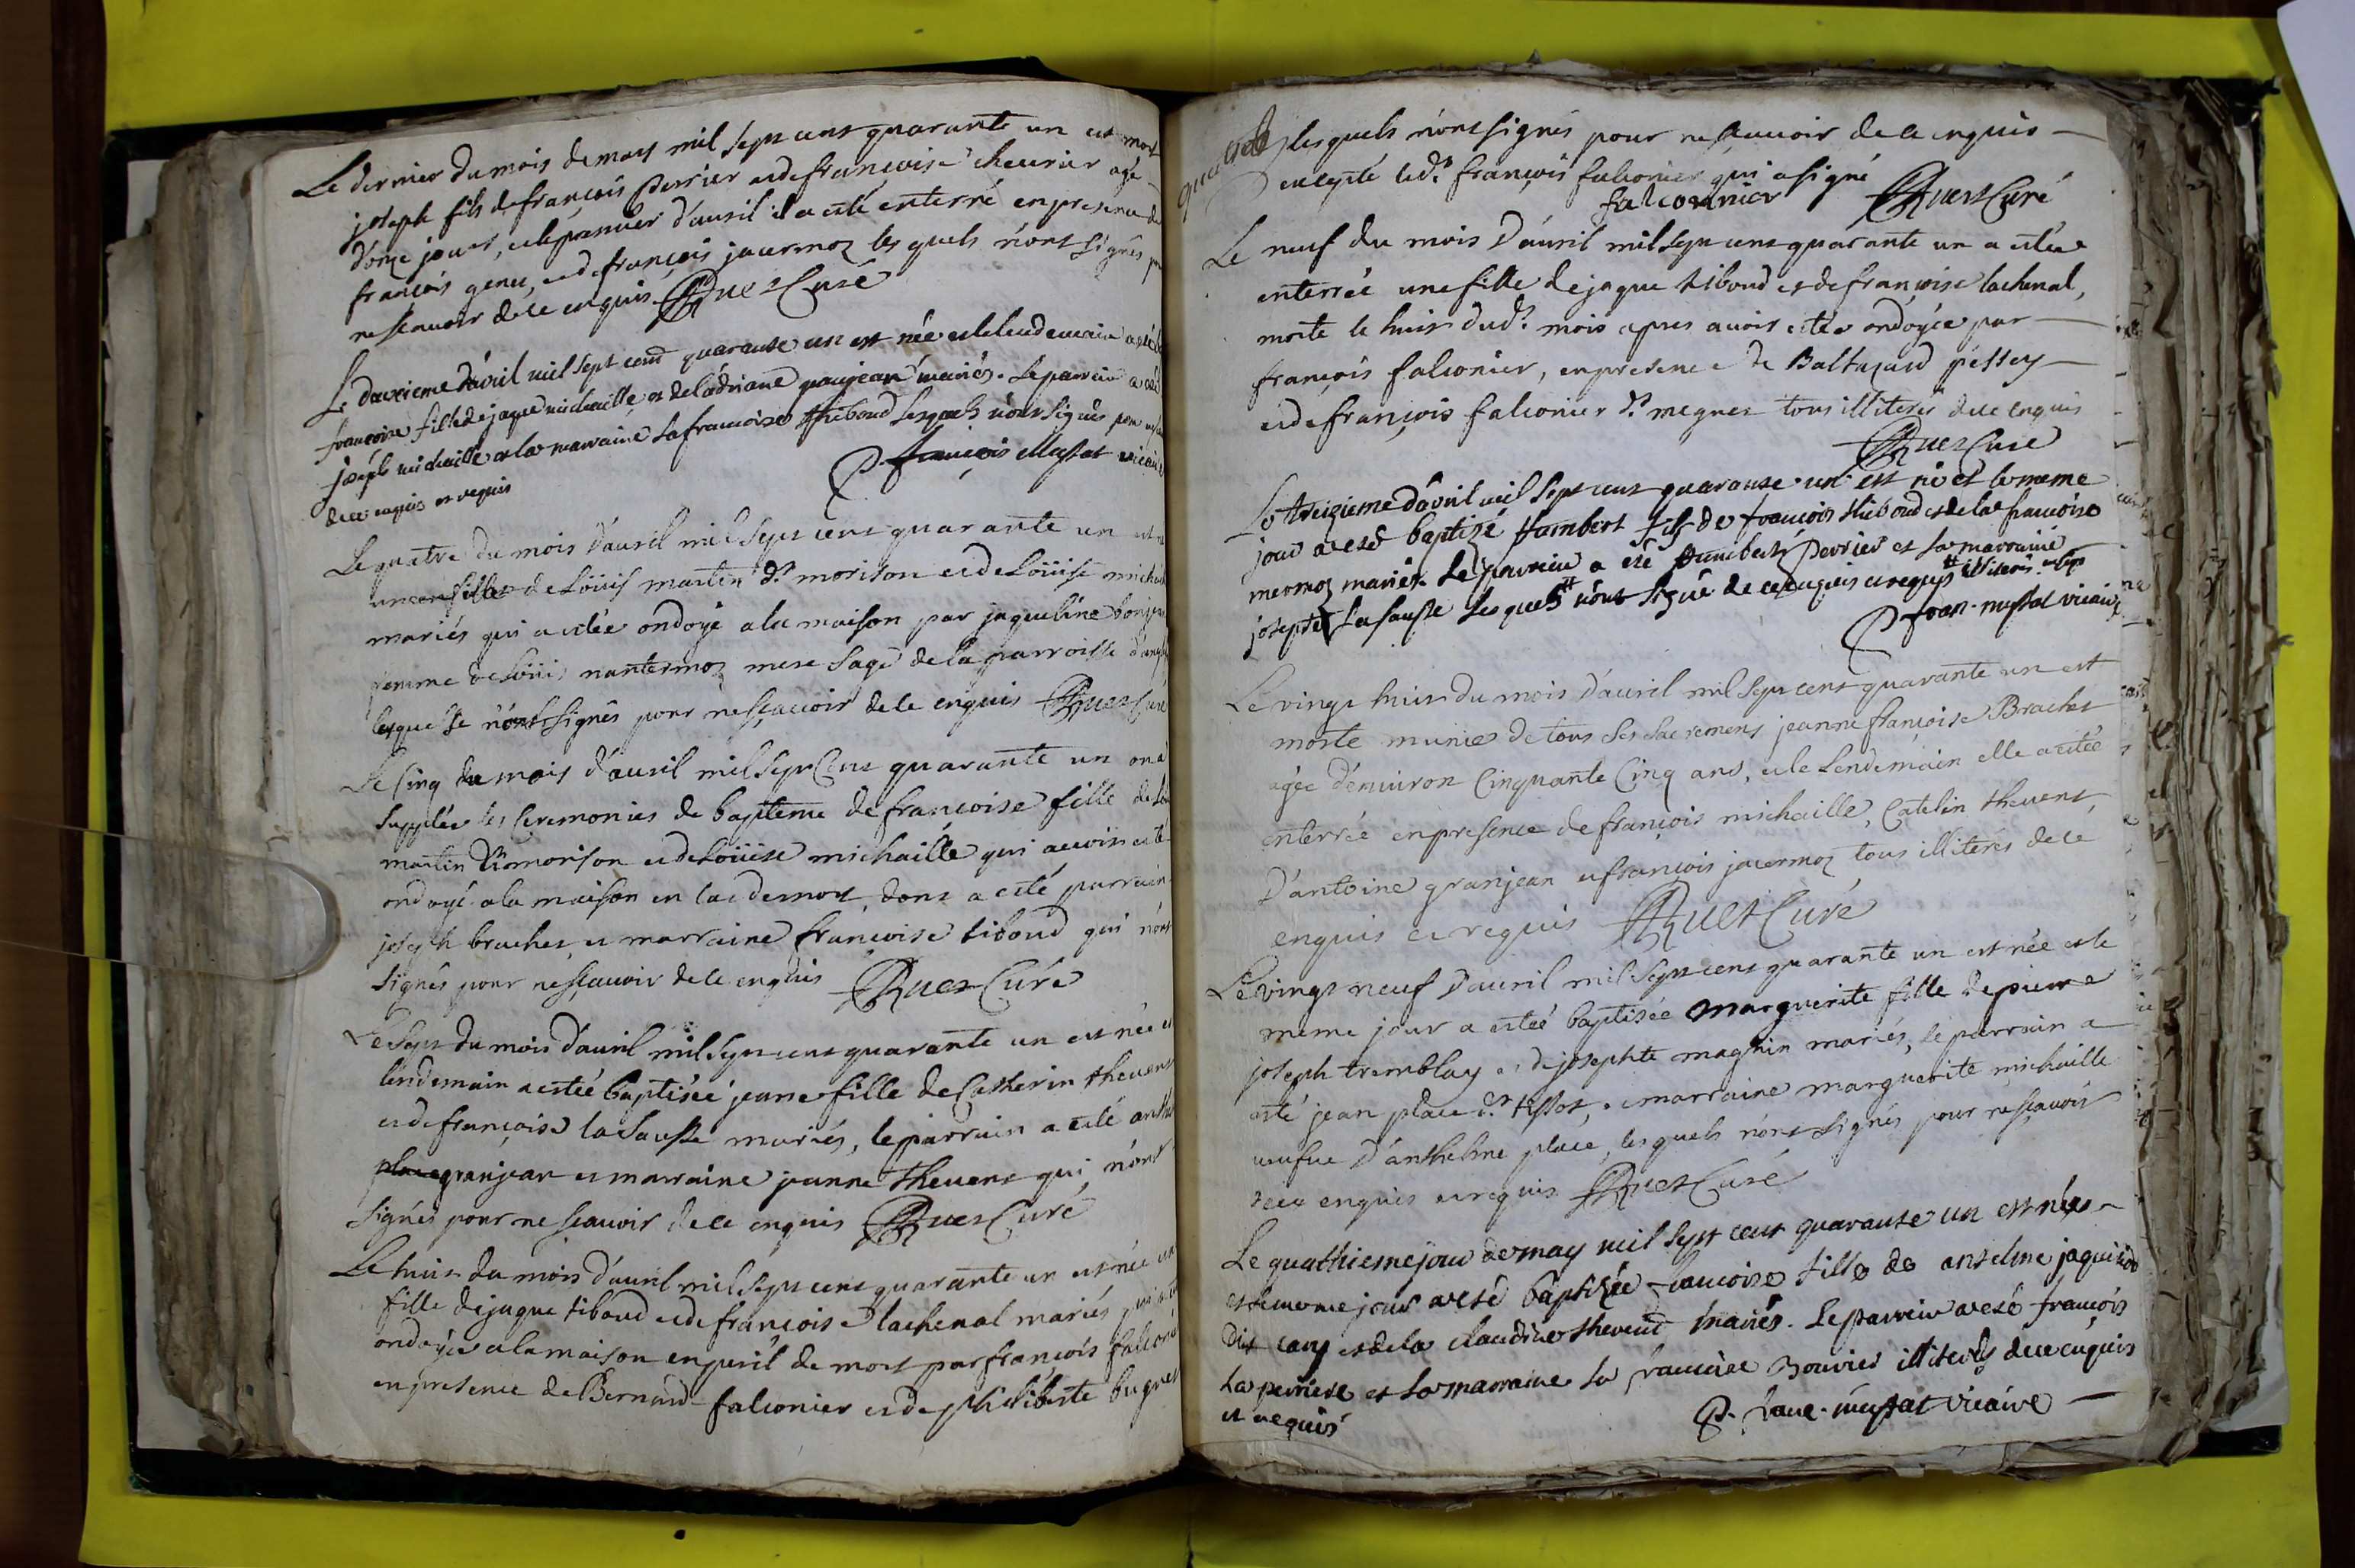 Le dernier du mois de mars mil sept cent quarante un est mort
joseph fils de françois Perrier et de françoise cheurier agé
d'onze jours, et le premier d'auril il a esté enterré en presence de
françois genu, et de françois jacermoz les quels n'ont signés pr
ne scauoir de ce enquis Ruet Curé
Le deuxieme d'avril mil sept cent quarante un est née et le lendemain a esté
françoise fille de jaque michaille et de ladriane granjean mariés. Le parrain a esté
joseph michaille et la marraine la francoise thiboud lesquels n'ont signés pour
de ce enquis et requis P. françois Mussat vicaire
Le quatre du mois d'auril mil sept cent quarante un est
une fille de Loüis martin dt morison et de Loüise michaille
mariés qui a estée ondoyé a la maison par jaqueline
femme de Loüis nantermoz mere sage de la parroisse
lesquelle n'ont signés pour ne scauoir de ce enquis Ruet Curé
Le Cinq du mois d'auril mil sept Cent quarante un on a
supplée les Ceremonies de bapteme de françoise fille de
martin dt morison et de Loüise michaille qui auoit esté
ondoyé a la maison en cas de mort, dont a esté parrain
joseph brachet et marraine françoise tiboud qui n'ont
signés pour ne scauoir de ce enquis Ruet Curé
Le sept du mois d'auril mil sept cent quarante un est née et
lendemain a estée baptisée jeane fille de Catherin theuent
et de françoise la sausse mariés, le parrain a esté
place granjean et marraine jeanne theuent qui n'ont
signés pour ne scauoir de ce enquis Ruet Curé
Le huit du mois d'auril mil sept cent quarante un est née une
fille de jaque tiboud et de françoise lachenal mariés qui a esté
ondoyée a la maison en peril de mort par françois falconier
en presence de Bernard falconier et de philiberte buquet
lesquels n'ont signés pour ne scauoir de ce enquis
excepté led.t françois falconier qui a signé
falconnier Ruet Curé
Le neuf du mois d'auril mil sept cent quarante un a estée
enterrée une fille de jaque tiboud et de françoise lachenal,
morte le huit dud.t mois apres auoir estée ondoyée par
françois falconier, en presence de Baltazard pessey
et de françois falconier dt megnez tous illiterés de ce enquis
Ruet Curé
Le treizieme d'avril mil sept cent quarante un est né et le meme
jour a esté baptizé humbert fils de françois thiboud et de la françoise
mermoz mariés. Le parrain a été humbert Perrier et la marraine
josephte La sausse Lesquels # n'ont signé de ce enquis et requis # illiterés
P. fran. mussat vicaire
Le vingt huit du mois d'auril mil sept cent quarante un est
morte munie de tous ses sacremens jeanne françoise Brachet
agée d'enuiron Cinquante Cinq ans, et le Lendemain elle a estée
enterrée en presence de françois michaille, Catelin theuent,
D'antoine granjean et françois jacermoz tous illiterés de ce
enquis et requis Ruet Curé
Le vingt neuf d'auril mil sept cent quarante un est née et le
meme jour a estée baptisée marguerite fille de pierre
joseph tremblay et de josephte magnin mariés, le parrain a
esté jean place dt tissot, et marraine marguerite michaille
ueufue d'anthelme place, les quels n'ont signés pour ne scauoir
de ce enquis et requis Ruet Curé
Le quathieme jour de may mil sept cent quarante un est née
et le meme jour a esté baptizée françoise fille de anselme jaquinod
dit cary et de la claudine thevent mariés. Le parrein a esté françois
La perriere et la marraine la françoise Bouvier illiterés de ce enquis
et requis P. franc. mussat vicaire